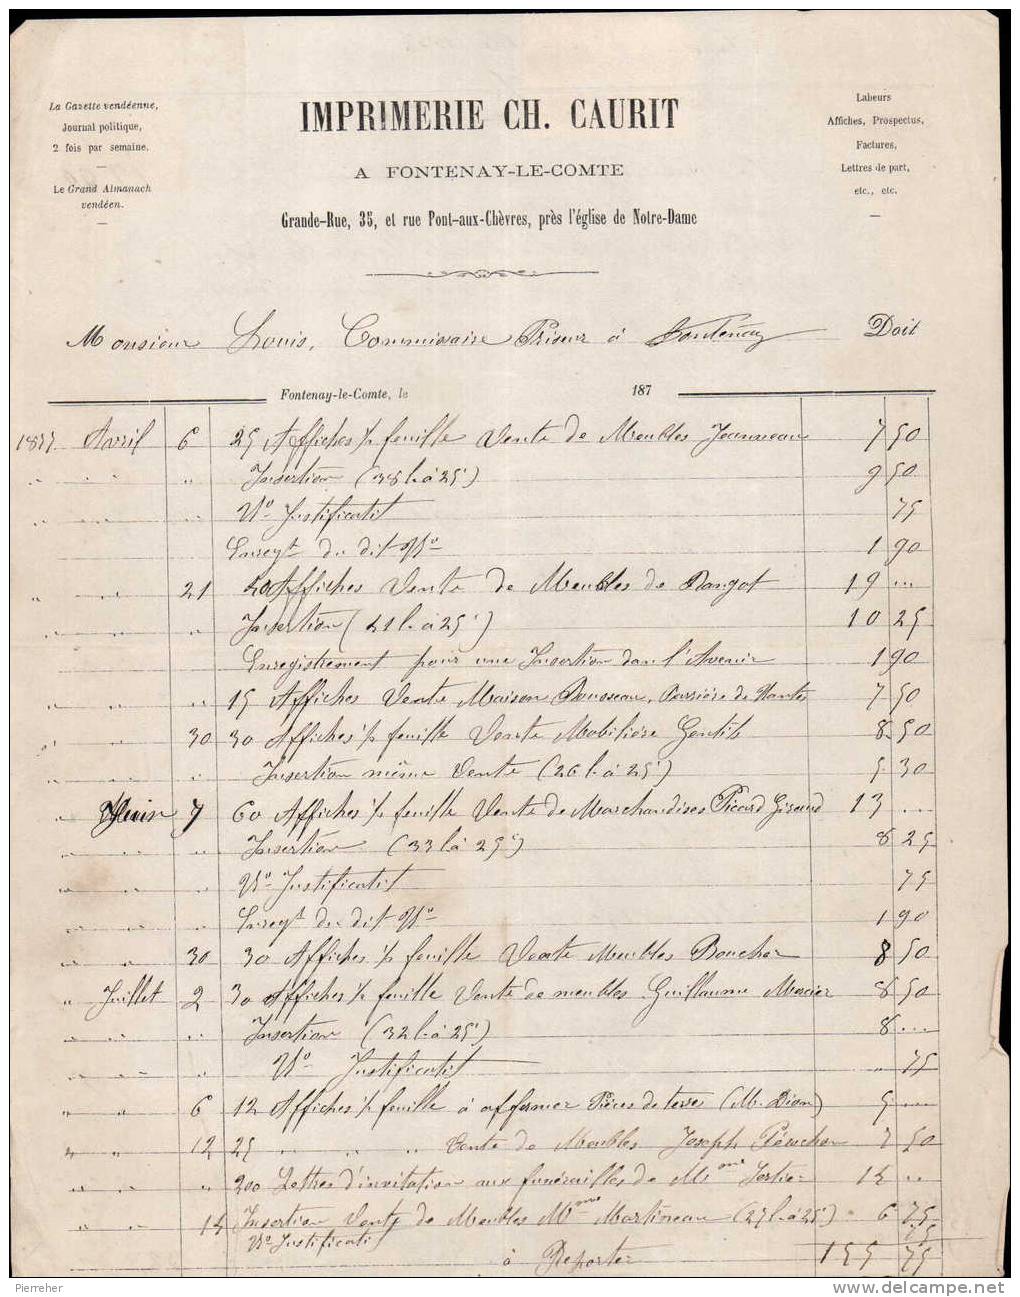 La Gazette vendéenne,
Journal politique,
2 fois par semaine.
Le Grand Almanach
vendéen.
IMPRIMERIE CH. CAURIT
A FONTENAY-LE-COMTE
Grande-Rue, 35, et rue Pont-aux-Chèvres, près l'église de Notre-Dame
Labeurs
Affiches, Prospectus,
Factures,
Lettres de part,
etc., etc.
Monsieur Louis, Commissaire Priseur à Fontenay Doit
Fontenay-le-Comte, le 187
1877 Avril 6 25 Affiches ½ feuille Vente de Meubles Jeanneau 7 50
" " " Insertion (38 l. à 25c) 9 50
" " " No Justificatif 75
Enregt du dit No 1 90
" " 21 50 Affiches Vente de Meubles de Dangot 19 ...
" " " Insertion (41 l. à 25c) 10 25
Enregistrement pour une Insertion dans l'Avenir 1 90
" " " 15 Affiches Vente Maison Rousseau, Barrière de Nantes 7 50
" " 30 30 Affiches ½ feuille Vente Mobilière Gentils 8 50
" " " Insertion même Vente (26 l. à 25c) 5 30
" Juin 7 60 Affiches ½ feuille Vente de Marchandises Picard Giraud 13 ...
" " " Insertion (33 l à 25c) 8 25
" " " No Justificatif 75
" " " Enregt du dit No 1 90
" " 30 30 Affiches ½ feuille Vente Meubles Boucher 8 50
" Juillet 2 30 Affiches ½ feuille Vente de meubles Guillaume Mercier 8 50
" " " Insertion (32 l. à 25c) 8 ...
" " " No Justificatif " 75
" " 6 12 Affiches ½ feuille à affermer Pièces de terres (Mr Dion) 5 ...
" " 12 25 " " " Vente de Meubles Joseph 7 50
" " " 200 Lettres d'invitation aux funérailles de Mme 12 "
" " 14 Insertion Vente de Meubles Mme Martineau (27 l. à 25c) 6 75
No Justificatif 75
à Reporter 155 75
Pierreher
www.delcampe.net